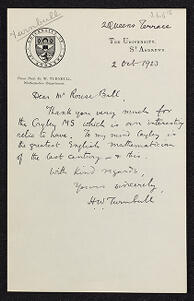 Turnbull
2 Queens Terrace
THE UNIVERSITY,
ST ANDREWS.
2 Oct 1923
From Prof. H. W. TURNBULL,
Mathematics Department.
Dear Mr Rouse Ball,
Thank you very much for
the Cayley MS which is an interesting
relic to have. To my mind Cayley is
the greatest English mathematician
of the last century & this.
With kind regards,
Yours sincerely,
HW Turnbull